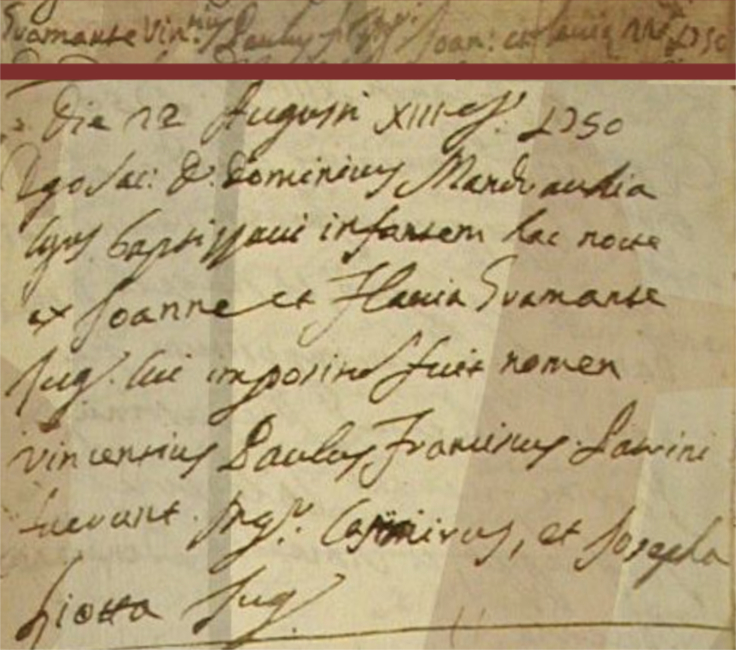 Svamante Vin.ius Paulus f. Joan: et Flavia 1750
Die 12 Augusti XIII ej. 1750
Ego Sac: D. Dominicus
baptizzavi infantem hac nocte
ex Joanne et Flavia Svamante
Jug. Cui imposit fuit nomen
Vincentius Paulus Franciscus. Patrini
fuerunt Casimirus, et Josepha
Jug